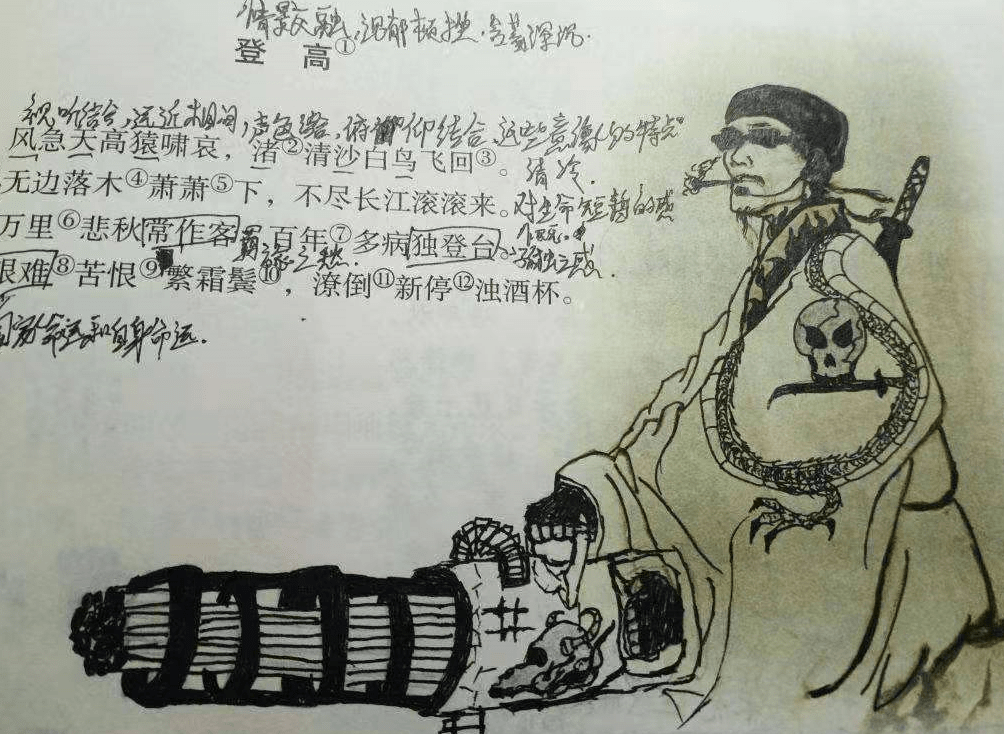 情景交融,沉郁顿挫.含蓄深沉.
登 高①
视听结合,远近相间,声色结合.俯仰结合.这些意象的特点
风急天高猿啸哀,渚②清沙白鸟飞回③。
清冷.
无边落木④萧萧⑤下,不尽长江滚滚来。
对生命短暂的感
万里⑥悲秋常作客,百年⑦多病独登台。
羁旅之愁.
孤独之感.
艰难⑧苦恨⑨繁霜鬓⑩,潦倒⑪新停⑫浊酒杯。
国家命运和自身命运.